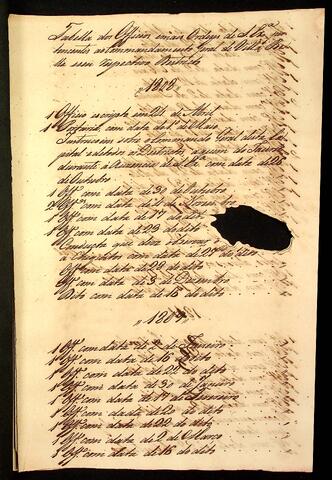 Tabella dos Officios e mais Ordens de S. Ex.ª per
tencentes ao Commandamento Geral de
seu respectivo Districto
1808
1 Officio escripto em 24 de Abril
1 com data de 1 de Maio
Instrucçoens sobre o Commando Geral desta Ca
pital e
durante a Auzencia de S. Ex.ª com data de 26
de Outubro
1 Off.º com data de 30 de Outubro
2 Off.ˢ com data de 4 de Novembro
1 Off.º com data de 17 de dito
1 Off.º com data de 23 de dito
1 que deve observar
com data de 27 de dito
Off.º com data de 29 de dito
Off.º com data de 3 de Dezembro
Dito com data de 16 de dito
1809
1 Off.º com data de 2 de Janeiro
1 Off.º com data de 16 Dito
1 Off.º com data de 22 de dito
1 Off.º com data de 30 de Janeiro
1 Off.º com data de 17 de Fevereiro
1 Off.º com data de 20 de dito
1 Off.º com data de 22 de dito
1 Off.º com data de 2 de Março
1 Off.º com data de 16 de dito